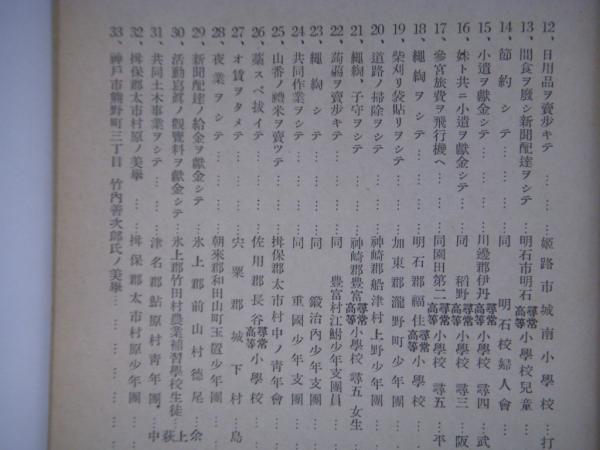 12、日用品ヲ賣步キテ………姬路市城南小學校…打
13、間食ヲ廢シ新聞配達ヲシテ…明石市明石尋常高等小學校兒童…
14、節約シテ………同 明石校婦人會…
15、小遣ヲ獻金シテ………川邊郡伊丹尋常高等小學校 尋四…武
16、妹ト共ニ小遣ヲ獻金シテ…同 稻野尋常高等小學校 尋三…阪
17、參宮旅費ヲ飛行機ヘ………同園田第二尋常高等小學校 尋五…平
18、繩綯ヲシテ………明石郡福住尋常高等小學校…
19、柴刈リ袋貼リヲシテ………加東郡瀧野町少年團…
20、道路ノ掃除ヲシテ………神崎郡船津村上野少年團…
21、繩綯、子守ヲシテ………神崎郡豐富尋常高等小學校 尋五女生…
22、蒟蒻ヲ賣步キテ………同 豐富村江鮒少年支團員…
23、繩綯シテ………同 鍛治內少年支團…
24、共同作業ヲシテ………同 重國少年支團…
25、山番ノ禮米ヲ賣ツテ………揖保郡太市村中ノ靑年會…
26、藁スベ拔イテ………佐用郡長谷尋常高等小學校…
27、オ賃ヲタメテ………宍粟郡城下村…島
28、夜業ヲシテ………朝來郡和田山町玉置少年團…
29、新聞配達ノ給金ヲ獻金シテ…氷上郡前山村德尾…余
30、活動寫眞ノ觀覽料ヲ獻金シテ…氷上郡竹田村農業補習學校生徒…荻上
31、共同土木事業ヲシテ………津名郡鮎原村靑年團…中
32、揖保郡太市村原ノ美擧………揖保郡太市村原少年團…
33、神戶市熊野町三丁目 竹內善次郞氏ノ美擧………